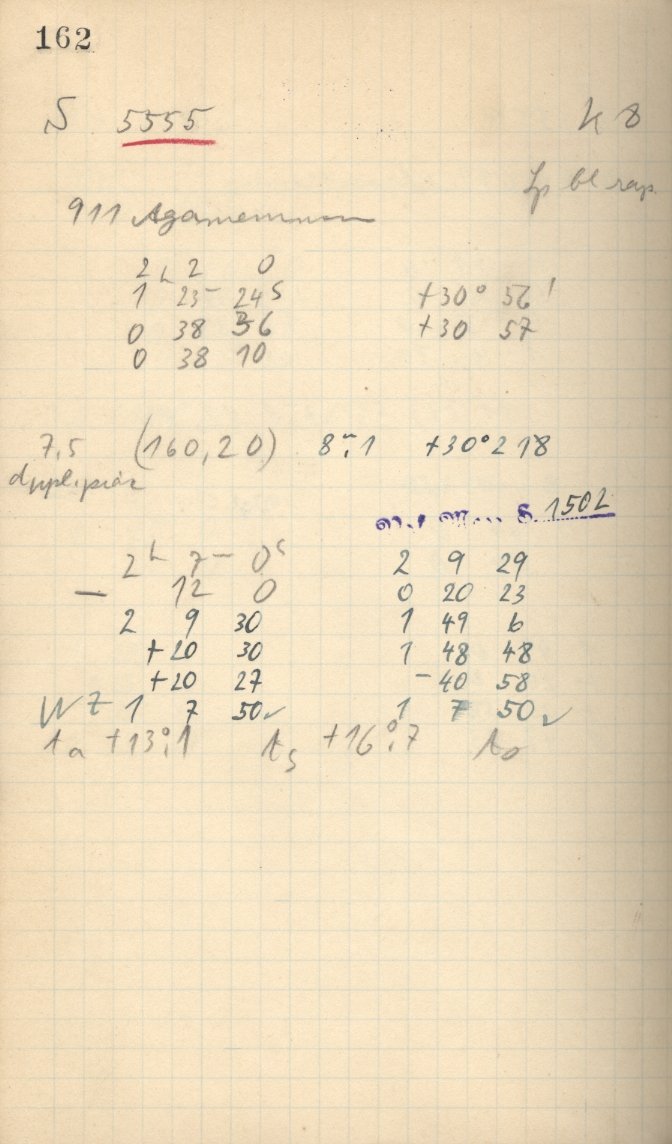 162
S 5555 K 8
911 Agamemnon
2h 2 0
1 23m 24s +30° 56'
0 38 36 +30 57
0 38 10
7,5 (160,20) 8m,1 +30° 2 18
1502
2h 7m 0s 2 9 29
— 12 0 0 20 23
2 9 30 1 49 6
+20 30 1 48 48
+20 27 -40 58
WZ 1 7 50✓ 1 7 50✓
ta +13°,1 ts +16°,7